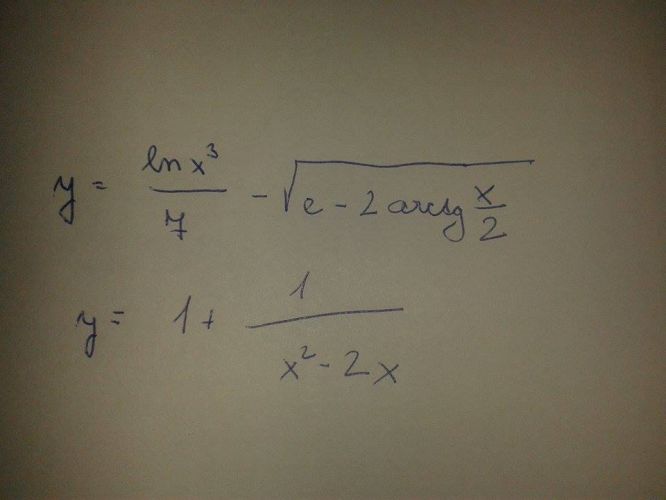 y = \frac{ln x^3}{7} - \sqrt{e - 2 arctg \frac{x}{2}}
y = 1 + \frac{1}{x^2 - 2x}